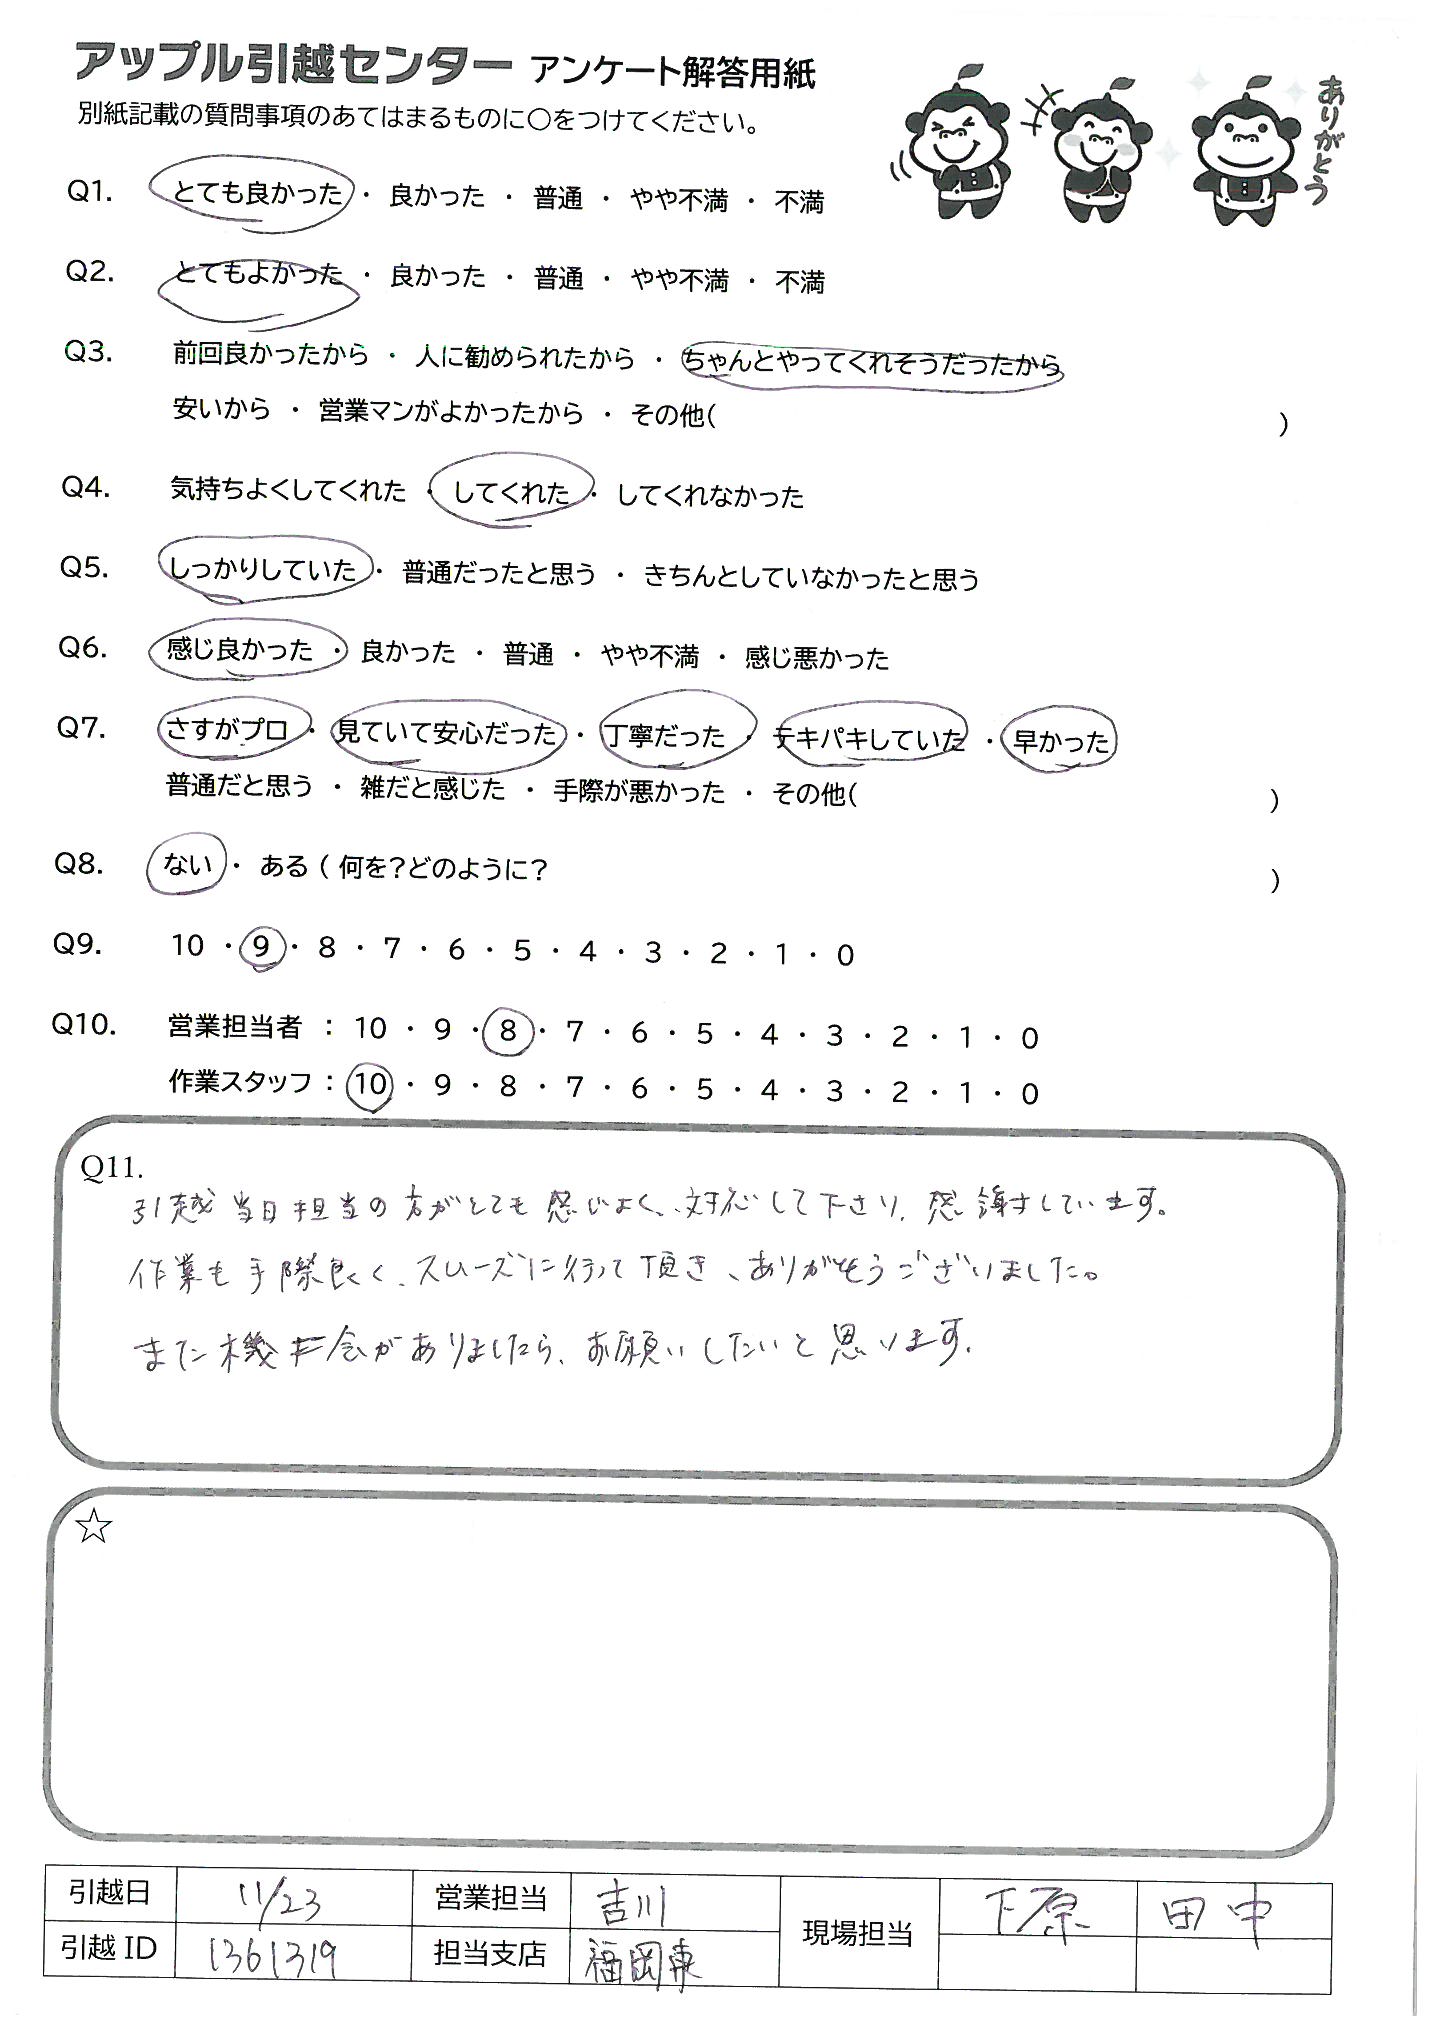 アップル引越センター アンケート解答用紙
別紙記載の質問事項のあてはまるものに○をつけてください。
ありがとう
Q1. とても良かった ・ 良かった ・ 普通 ・ やや不満 ・ 不満
Q2. とてもよかった ・ 良かった ・ 普通 ・ やや不満 ・ 不満
Q3. 前回良かったから ・ 人に勧められたから ・ ちゃんとやってくれそうだったから
安いから ・ 営業マンがよかったから ・ その他( )
Q4. 気持ちよくしてくれた ・ してくれた ・ してくれなかった
Q5. しっかりしていた ・ 普通だったと思う ・ きちんとしていなかったと思う
Q6. 感じ良かった ・ 良かった ・ 普通 ・ やや不満 ・ 感じ悪かった
Q7. さすがプロ ・ 見ていて安心だった ・ 丁寧だった ・ テキパキしていた ・ 早かった
普通だと思う ・ 雑だと感じた ・ 手際が悪かった ・ その他( )
Q8. ない ・ ある ( 何を?どのように? )
Q9. 10 ・ 9 ・ 8 ・ 7 ・ 6 ・ 5 ・ 4 ・ 3 ・ 2 ・ 1 ・ 0
Q10. 営業担当者 : 10 ・ 9 ・ 8 ・ 7 ・ 6 ・ 5 ・ 4 ・ 3 ・ 2 ・ 1 ・ 0
作業スタッフ : 10 ・ 9 ・ 8 ・ 7 ・ 6 ・ 5 ・ 4 ・ 3 ・ 2 ・ 1 ・ 0
Q11.
引越当日担当の方がとても感じよく、対応して下さり、感謝しています。
作業も手際良く、スムーズに行って頂き、ありがとうございました。
また機会がありましたら、お願いしたいと思います。
☆
引越日 11/23 営業担当 吉川 現場担当 下原 田中
引越ID 1361319 担当支店 福岡東